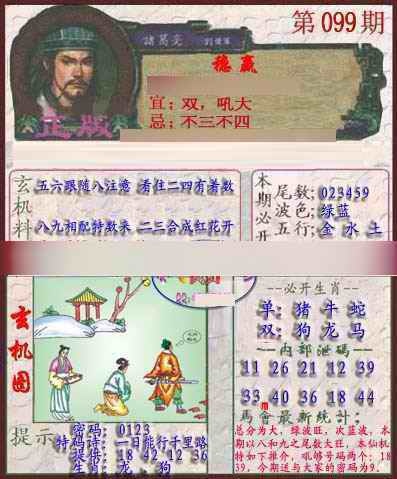 第099期
諸葛亮
劉備軍
稳赢
宜;双,吼大
忌;不三不四
正版
玄机料
五六跟随八注意 看住二四有着数
八九相配特数来 二三合成红花开
本期必开
尾数;023459
波色;绿蓝
五行;金 水 土
玄机图
必开生肖
单:猪牛蛇
双:狗龙马
内部泄码
11 26 21 12 39
33 40 36 18 44
馬會最新統计:
总分为大,绿波旺,次蓝波,本
期以八和九之尾数大旺,本仙机
特如下推介,吼够号码两个:18
39,今期送与大家的密码为9.
提示
密码;0123
特码诗;一日能行千里路
提供;18 42 12 36
生肖;龙,狗